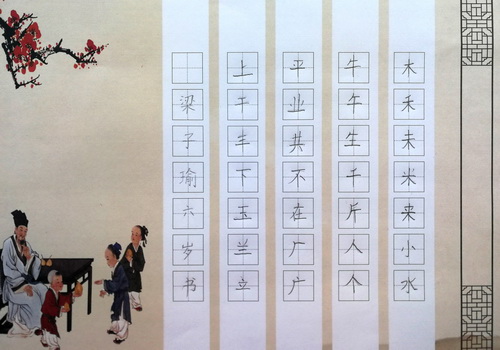 木禾未米来小水
牛午生千斤人个
平业共不在厂广
上干丰下玉兰立
梁子瑜六岁书